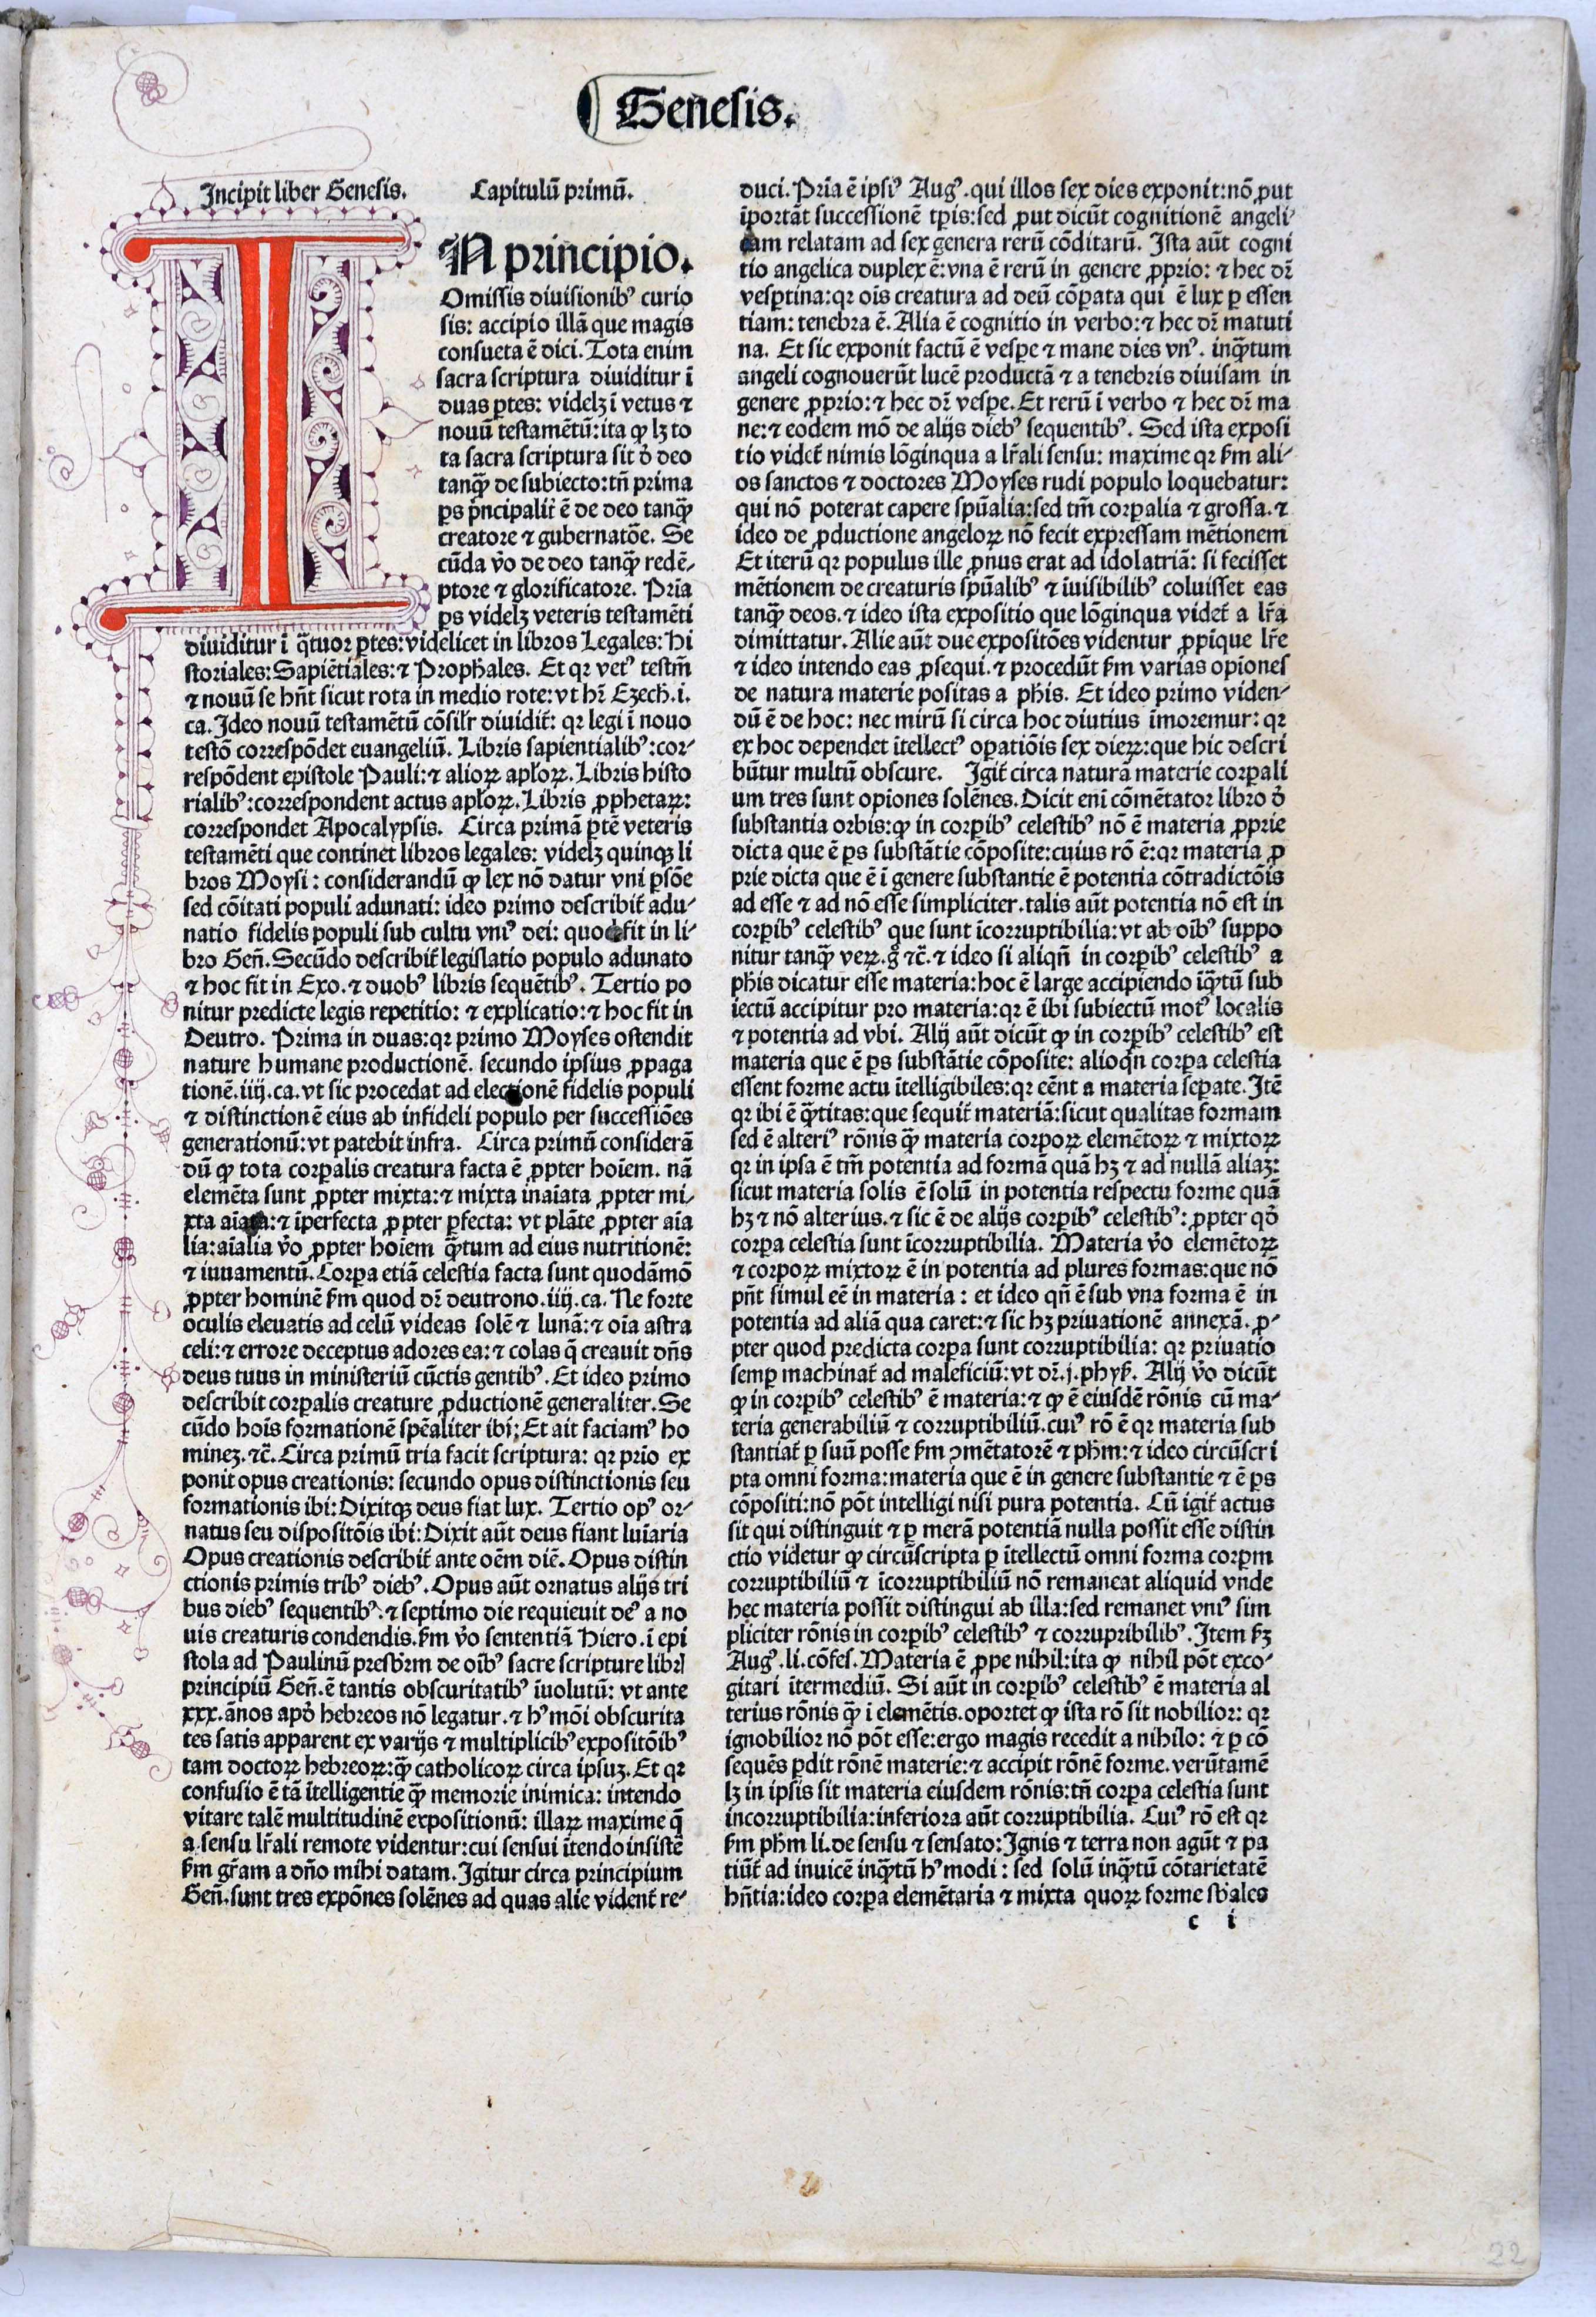 Genesis.
Incipit liber Genesis. Capitulū primū.
IN principio.
Omissis diuisionibꝰ curio
sis: accipio illā que magis
consueta ē dici. Tota enim
sacra scriptura diuiditur ī
duas ꝑtes: videlꝫ ī vetus ⁊
nouū testamētū: ita ꝙ lꝫ to
ta sacra scriptura sit ð deo
tanꝙ̄ de subiecto: tn̄ prima
ꝑs pͥncipalit̄ ē de deo tanꝙ̄
creatore ⁊ gubernatōe. Se
cūda v̄o de deo tanꝙ̄ redē-
ptore ⁊ glorificatore. Pria
ꝑs videlꝫ veteris testamēti
diuiditur ī q̄tuor ꝑtes: videlicet in libros Legales: Hi
storiales: Sapiētiales: ⁊ Prophales. Et qꝛ vetꝰ testm̄
⁊ nouū se hn̄t sicut rota in medio rote: vt hr̄ Ezech. i.
ca. Ideo nouū testamētū cōsilr̄ diuidit̄: qꝛ legi ī nouo
testō correspōdet euangeliū. Libris sapientialibꝰ: cor-
respōdent epistole Pauli: ⁊ alioꝝ apl̄oꝝ. Libris histo
rialibꝰ: correspondent actus apl̄oꝝ. Libris ꝓphetaꝝ:
correspondet Apocalypsis. Circa primā ꝑtē veteris
testamēti que continet libros legales: videlꝫ quinqꝫ li
bros Moysi: considerandū ꝙ lex nō datur vni ꝑsōe
sed cōitati populi adunati: ideo primo describit̄ adu-
natio fidelis populi sub cultu vniꝰ dei: quod fit in li-
bro Gen̄. Secūdo describit̄ legislatio populo adunato
⁊ hoc fit in Exo. ⁊ duobꝰ libris sequētibꝰ. Tertio po
nitur predicte legis repetitio: ⁊ explicatio: ⁊ hoc fit in
Deutro. Prima in duas: qꝛ primo Moyses ostendit
nature humane productionē. secundo ipsius ꝓpaga
tionē. iiij. ca. vt sic procedat ad electionē fidelis populi
⁊ distinctionē eius ab infideli populo per successiōes
generationū: vt patebit infra. Circa primū considerā
dū ꝙ tota corꝑalis creatura facta ē ꝓpter hoīem. nā
elemēta sunt ꝓpter mixta: ⁊ mixta inaīata ꝓpter mi-
xta aīata: ⁊ īperfecta ꝓpter ꝑfecta: vt plāte ꝓpter aīa
lia: aīalia v̄o ꝓpter hoīem ꝙ̄tum ad eius nutritionē:
⁊ iuuamentū. Corꝑa etiā celestia facta sunt quodāmō
ꝓpter hominē ẜm quod dr̄ deutrono. iiij. ca. Ne forte
oculis eleuatis ad celū videas solē ⁊ lunā: ⁊ oīa astra
celi: ⁊ errore deceptus adores ea: ⁊ colas q̄ creauit dn̄s
deus tuus in ministeriū cūctis gentibꝰ. Et ideo primo
describit corꝑalis creature ꝓductionē generaliter. Se
cūdo hoīs formationē spēaliter ibi; Et ait faciamꝰ ho
mineꝫ. ⁊c̄. Circa primū tria facit scriptura: qꝛ prīo ex
ponit opus creationis: secundo opus distinctionis seu
formationis ibi: Dixitqꝫ deus fiat lux. Tertio opꝰ or-
natus seu dispositōis ibi: Dixit aūt deus fiant luīaria
Opus creationis describit̄ ante oēm diē. Opus distin
ctionis primis tribꝰ diebꝰ. Opus aūt ornatus alijs tri
bus diebꝰ sequentibꝰ. ⁊ septimo die requieuit deꝰ a no
uis creaturis condendis. ẜm v̄o sententiā Hiero. ī epi
stola ad Paulinū presbr̄m de oībꝰ sacre scripture libri
principiū Gen̄. ē tantis obscuritatibꝰ īuolutū: vt ante
xxx. ānos apð hebreos nō legatur. ⁊ hꝰ mōi obscurita
tes satis apparent ex varijs ⁊ multiplicibꝰ expositōibꝰ
tam doctoꝝ hebreoꝝ: ꝙ̄ catholicoꝝ circa ipsuꝫ. Et qꝛ
confusio ē tā ītelligentie ꝙ̄ memorie inimica: intendo
vitare talē multitudinē expositionū: illaꝝ maxime q̄
a sensu lr̄ali remote videntur: cui sensui ītendo insistē
ẜm gr̄am a dn̄o mihi datam. Igitur circa principium
Gen̄. sunt tres expōnes solēnes ad quas alie vident̄ re-
duci. Pria ē ipsiꝰ Augꝰ. qui illos sex dies exponit: nō ꝓut
īportāt successionē tꝑis: sed ꝓut dicūt cognitionē angeli-
cam relatam ad sex genera rerū cōditarū. Ista aūt cogni
tio angelica duplex ē: vna ē rerū in genere ꝓprio: ⁊ hec dr̄
vesꝑtina: qꝛ oīs creatura ad deū cōꝑata qui ē lux ꝑ essen
tiam: tenebra ē. Alia ē cognitio in verbo: ⁊ hec dr̄ matuti
na. Et sic exponit factū ē vesꝑe ⁊ mane dies vnꝰ. inꝙ̄tum
angeli cognouerūt lucē productā ⁊ a tenebris diuisam in
genere ꝓprio: ⁊ hec dr̄ vesꝑe. Et rerū ī verbo ⁊ hec dr̄ ma
ne: ⁊ eodem mō de alijs diebꝰ sequentibꝰ. Sed ista exposi
tio videt̄ nimis lōginqua a lr̄ali sensu: maxime qꝛ ẜm ali-
os sanctos ⁊ doctores Moyses rudi populo loquebatur:
qui nō poterat capere spūalia: sed tm̄ corꝑalia ⁊ grossa. ⁊
ideo de ꝓductione angeloꝝ nō fecit expressam mētionem
Et iterū qꝛ populus ille ꝓnus erat ad idolatriā: si fecisset
mētionem de creaturis spūalibꝰ ⁊ īuisibilibꝰ coluisset eas
tanꝙ̄ deos. ⁊ ideo ista expositio que lōginqua videt̄ a lr̄a
dimittatur. Alie aūt due expositōes videntur ꝓpīque lr̄e
⁊ ideo intendo eas ꝓsequi. ⁊ procedūt ẜm varias opiones
de natura materie positas a phīs. Et ideo primo viden-
dū ē de hoc: nec mirū si circa hoc diutius īmoremur: qꝛ
ex hoc dependet ītellectꝰ oꝑatiōis sex dieꝝ: que hic descri
būtur multū obscure. Igit̄ circa naturā materie corꝑali
um tres sunt opiones solēnes. Dicit eni cōmētator libro ð
substantia orbis: ꝙ in corꝑibꝰ celestibꝰ nō ē materia ꝓprie
dicta que ē ꝑs substātie cōposite: cuius rō ē: qꝛ materia ꝓ
prie dicta que ē ī genere substantie ē potentia cōtradictōis
ad esse ⁊ ad nō esse simpliciter. talis aūt potentia nō est in
corꝑibꝰ celestibꝰ que sunt īcorruptibilia: vt ab oībꝰ suppo
nitur tanꝙ̄ veꝝ. g̊ ⁊c̄. ⁊ ideo si aliqn̄ in corꝑibꝰ celestibꝰ a
phīs dicatur esse materia: hoc ē large accipiendo īꝙ̄tū sub
iectū accipitur pro materia: qꝛ ē ibi subiectū motꝰ localis
⁊ potentia ad vbi. Alij aūt dicūt ꝙ in corꝑibꝰ celestibꝰ est
materia que ē ꝑs substātie cōposite: alioqn̄ corꝑa celestia
essent forme actu ītelligibiles: qꝛ eēnt a materia seꝑate. Itē
qꝛ ibi ē ꝙ̄titas: que sequit̄ materiā: sicut qualitas formam
sed ē alteriꝰ rōnis ꝙ̄ materia corpoꝝ elemētoꝝ ⁊ mixtoꝝ
qꝛ in ipsa ē tm̄ potentia ad formā quā hꝫ ⁊ ad nullā aliaꝫ:
sicut materia solis ē solū in potentia respectu forme quā
hꝫ ⁊ nō alterius. ⁊ sic ē de alijs corꝑibꝰ celestibꝰ: ꝓpter qð
corꝑa celestia sunt īcorruptibilia. Materia v̄o elemētoꝝ
⁊ corpoꝝ mixtoꝝ ē in potentia ad plures formas: que nō
pn̄t simul eē in materia: et ideo qn̄ ē sub vna forma ē in
potentia ad aliā qua caret: ⁊ sic hꝫ priuationē annexā. ꝓ-
pter quod predicta corꝑa sunt corruptibilia: qꝛ priuatio
semꝑ machinat̄ ad maleficiū: vt dr̄. j. phyẜ. Alij v̄o dicūt
ꝙ in corꝑibꝰ celestibꝰ ē materia: ⁊ ꝙ ē eiusdē rōnis cū ma-
teria generabiliū ⁊ corruptibiliū. cuiꝰ rō ē qꝛ materia sub
stantiat̄ ꝑ suū posse ẜm ꝯmētatorē ⁊ ph̄m: ⁊ ideo circūscri
pta omni forma: materia que ē in genere substantie ⁊ ē ꝑs
cōpositi: nō pōt intelligi nisi pura potentia. Cū igit̄ actus
sit qui distinguit ⁊ ꝑ merā potentiā nulla possit esse distin
ctio videtur ꝙ circūscripta ꝑ ītellectū omni forma corꝑm
corruptibiliū ⁊ īcorruptibiliū nō remaneat aliquid vnde
hec materia possit distingui ab illa: sed remanet vniꝰ sim
pliciter rōnis in corꝑibꝰ celestibꝰ ⁊ corrupribilibꝰ. Item ẜꝫ
Augꝰ. li. cōfes. Materia ē ꝓpe nihil: ita ꝙ nihil pōt exco-
gitari ītermediū. Si aūt in corꝑibꝰ celestibꝰ ē materia al
terius rōnis ꝙ̄ ī elemētis. oportet ꝙ ista rō sit nobilior: qꝛ
ignobilior nō pōt esse: ergo magis recedit a nihilo: ⁊ ꝑ cō
sequēs ꝑdit rōnē materie: ⁊ accipit rōnē forme. verūtamē
lꝫ in ipsis sit materia eiusdem rōnis: tn̄ corꝑa celestia sunt
incorruptibilia: inferiora aūt corruptibilia. Cuiꝰ rō est qꝛ
ẜm ph̄m li. de sensu ⁊ sensato: Ignis ⁊ terra non agūt ⁊ pa
tiūt̄ ad inuicē inꝙ̄tū hꝰ modi: sed solū inꝙ̄tū cōtarietatē
hn̄tia: ideo corꝑa elemētaria ⁊ mixta quoꝝ forme sb̄ales
c i
22